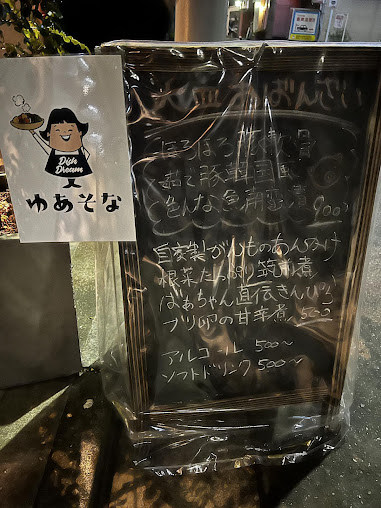 Dish
Dream
ゆあそな
おばんざい
ほろほろ豚軟骨
900
自家製がんものあんかけ
根菜たっぷり筑前煮
ばぁちゃん直伝きんぴら
ブリ卵の甘辛煮 500
アルコール 500〜
ソフトドリンク 500〜